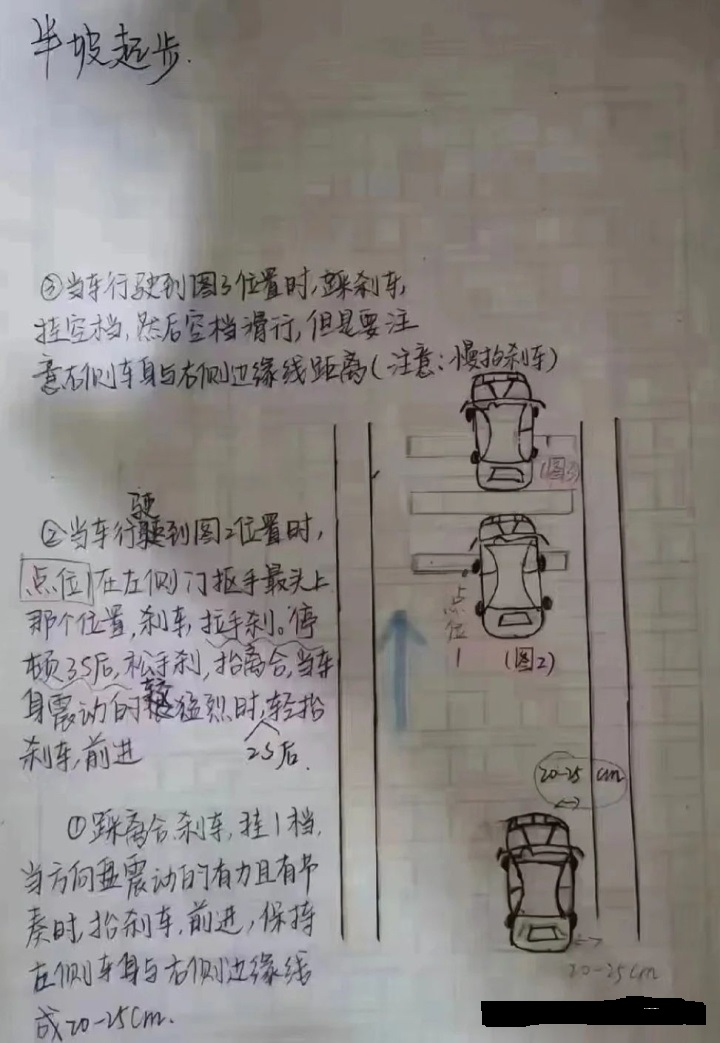 半坡起步.
③当车行驶到图3位置时,踩刹车,
挂空档,然后空档滑行,但是要注
意右侧车身与右侧边缘线距离(注意:慢抬刹车)
(图3)
驶
②当车行驶到图2位置时,
点位1在左侧门抠手最头上
那个位置,刹车,拉手刹。停
顿3S后,松手刹,抬离合,当车
身震动的较猛烈时,轻抬
刹车,前进
2S后.
点位1
(图2)
20-25cm
①踩离合.刹车,挂1档,
当方向盘震动的有力且有节
奏时,抬刹车,前进,保持
左侧车身与右侧边缘线
成20-25cm.
20-25cm